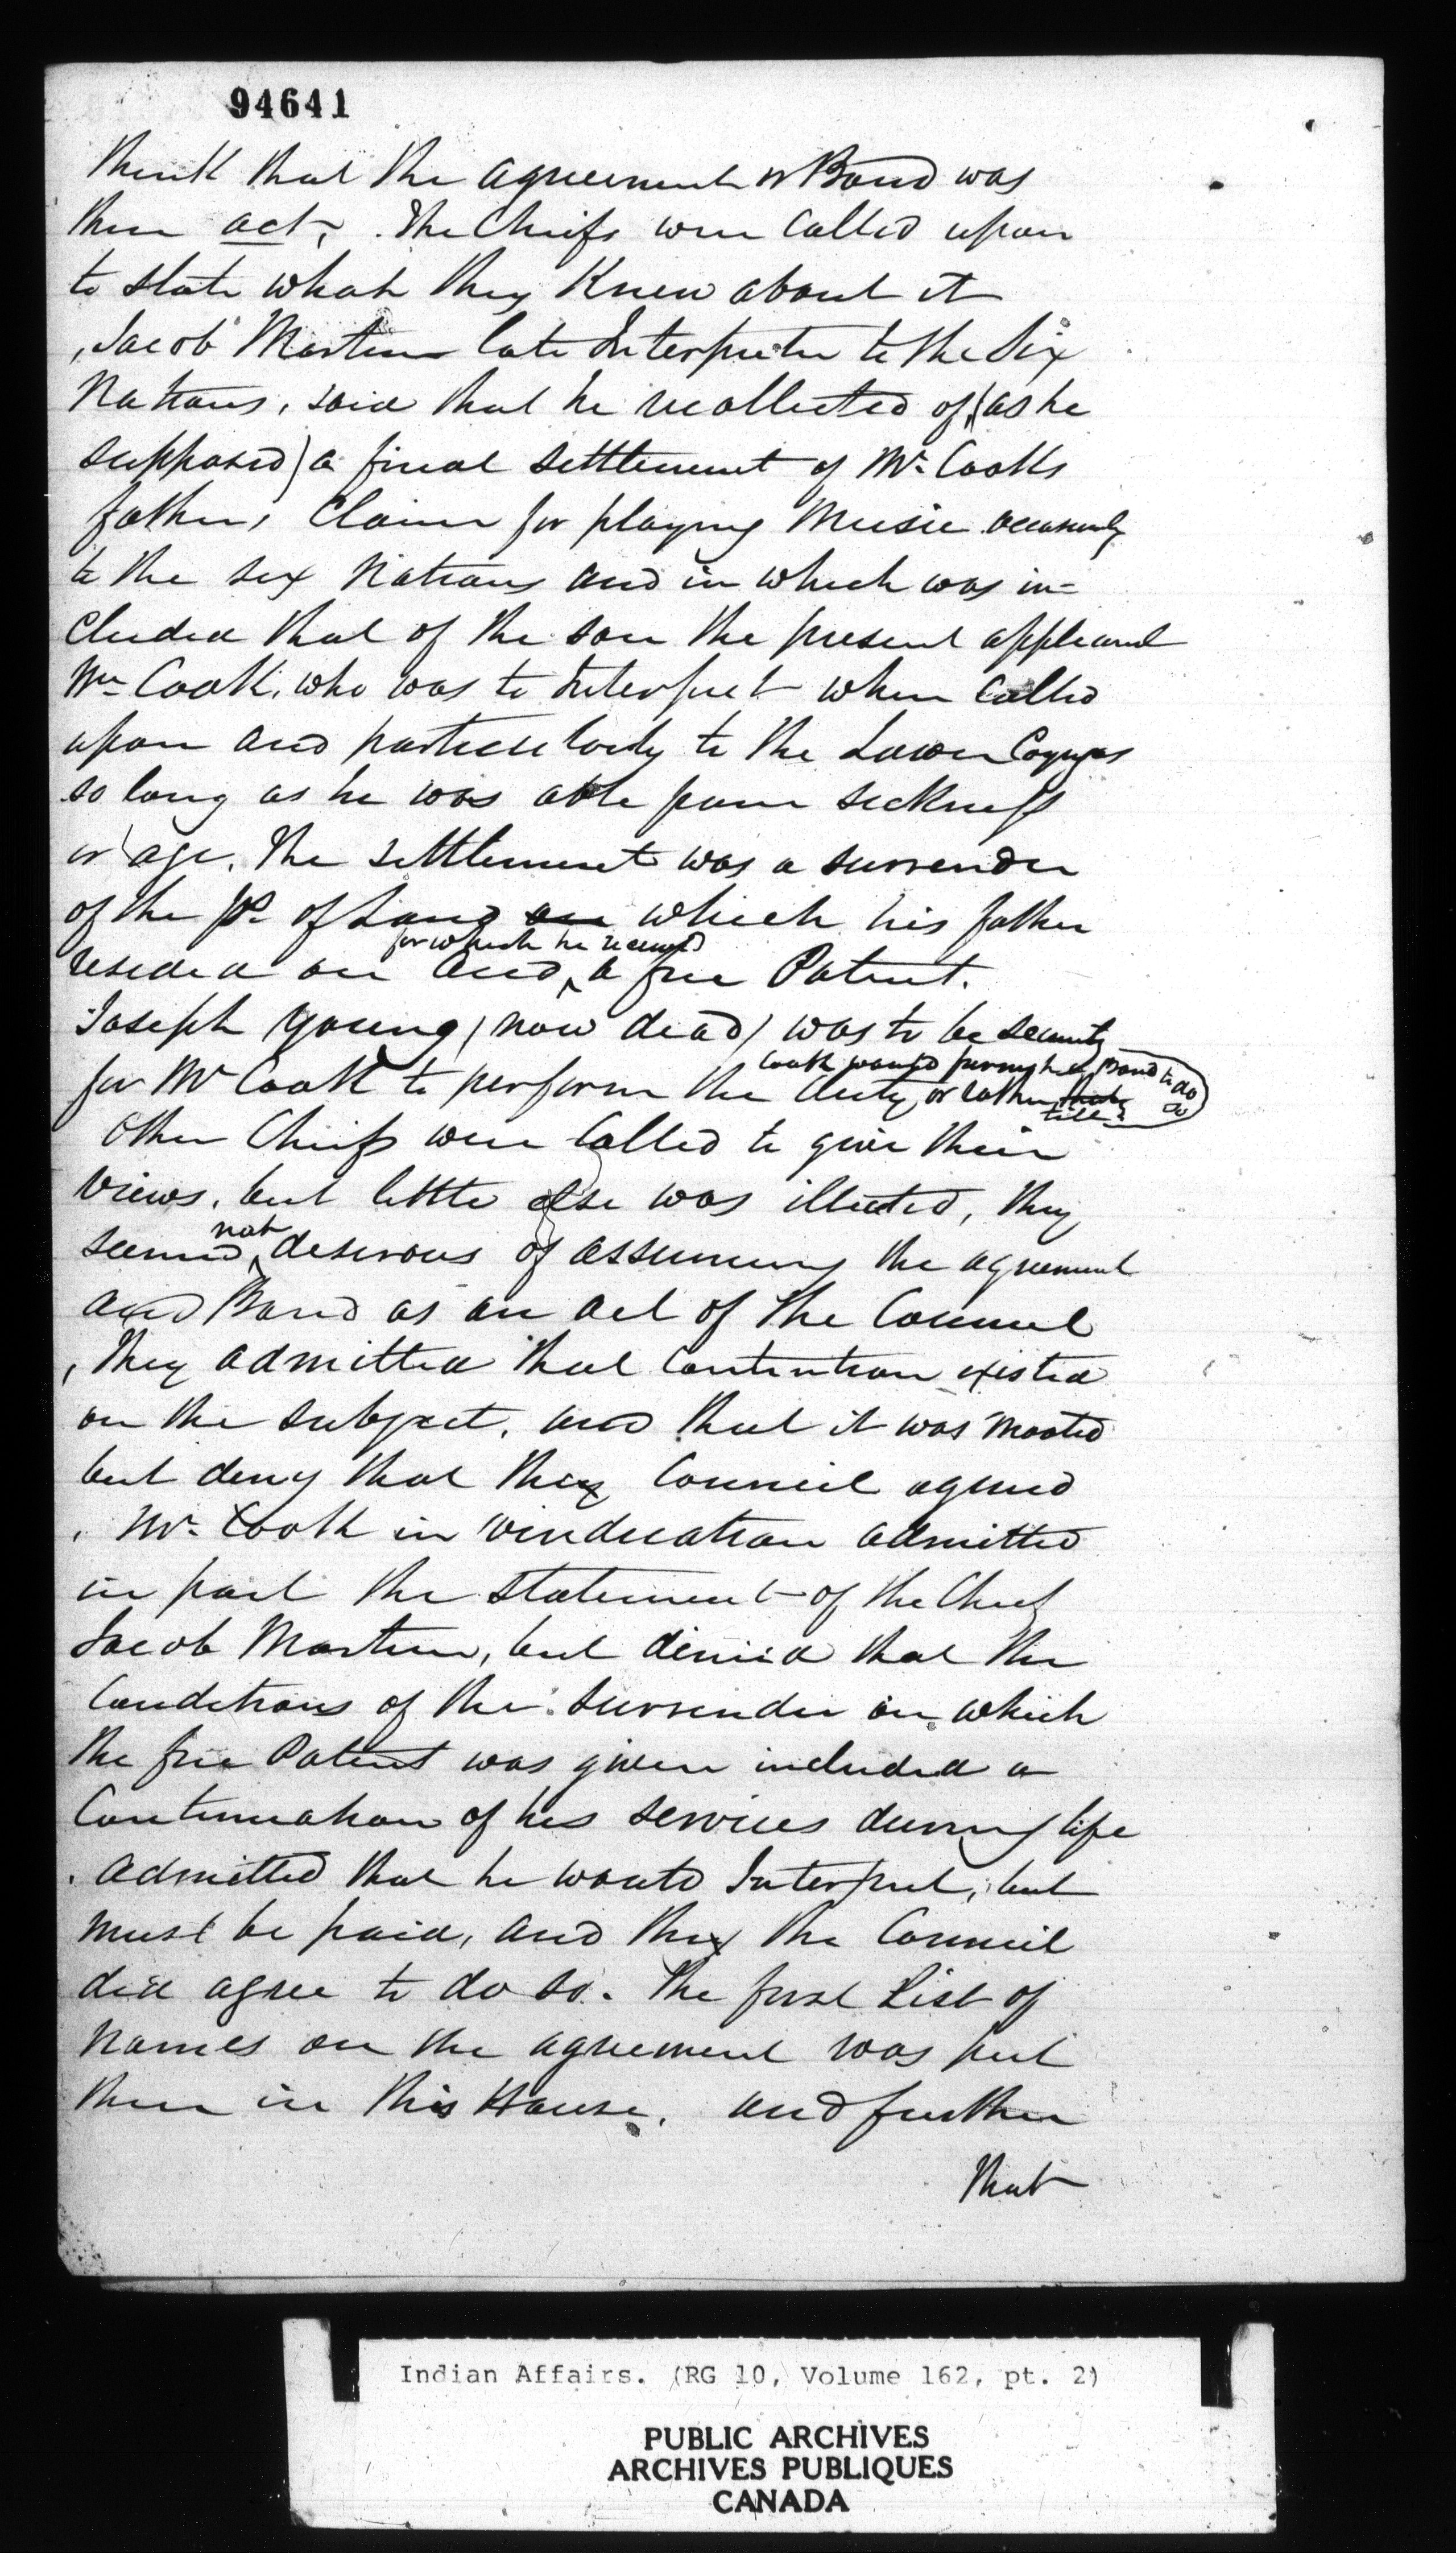 94641
think that the agreement or Bond was
their act, The Chiefs were Called upon
to state what they Knew about it
, Jacob Martin late Interpreter to the Six
Nations, said that he recollected of, (as he
supposed) a final settlement of Mr. Cooks
father, Claim for playing Music occasionly
to the six Nations and in which was in=
cluded that of the son the present applicant
Wm Cook, who was to Interpret when Called
upon and particularly to the Lower Cayugas
so long as he was able from sickness
or age. The settlement was a surrender
of the pc. of Land on which his father
for which he received
resided on and, a free Patent.
Joseph Young (now dead) was to be security
Cook would furnish a Bond to do so
for Mr Cook to perform the duty, or rather
till
Other Chiefs were Called to give their
views, but little else was illicited, they
not
seemed desirous of assuming the agreement
and Bond as an act of the Council
, they admitted that Contention existed
on the subject, and that it was mooted
but deny that they Council agreed
, Mr. Cook in vindication admitted
in part the statement of the Chief
Jacob Martin, but denied that the
Conditions of the surrender on which
the free Patent was given included a
Continuation of his services during life
. Admitted that he would Interpret, but
must be paid, and they the Council
did agree to do so. The first List of
names on the agreement was put
there in this House, and further
that
Indian Affairs. (RG 10, Volume 162, pt. 2)
PUBLIC ARCHIVES
ARCHIVES PUBLIQUES
CANADA